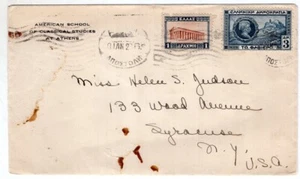 AMERICAN SCHOOL
OF CLASSICAL STUDIES
AT ATHENS
ΕΛΛΑΣ
1 ΔΡΑΧΜΗ 1
ΕΛΛΗΝΙΚΗ ΔΗΜΟΚΡΑΤΙΑ
3
ΑΠΟΣΤΟΛΗ
Miss Helen S. Judson
133 Wood Avenue
Syracuse
N.Y.
U.S.A.